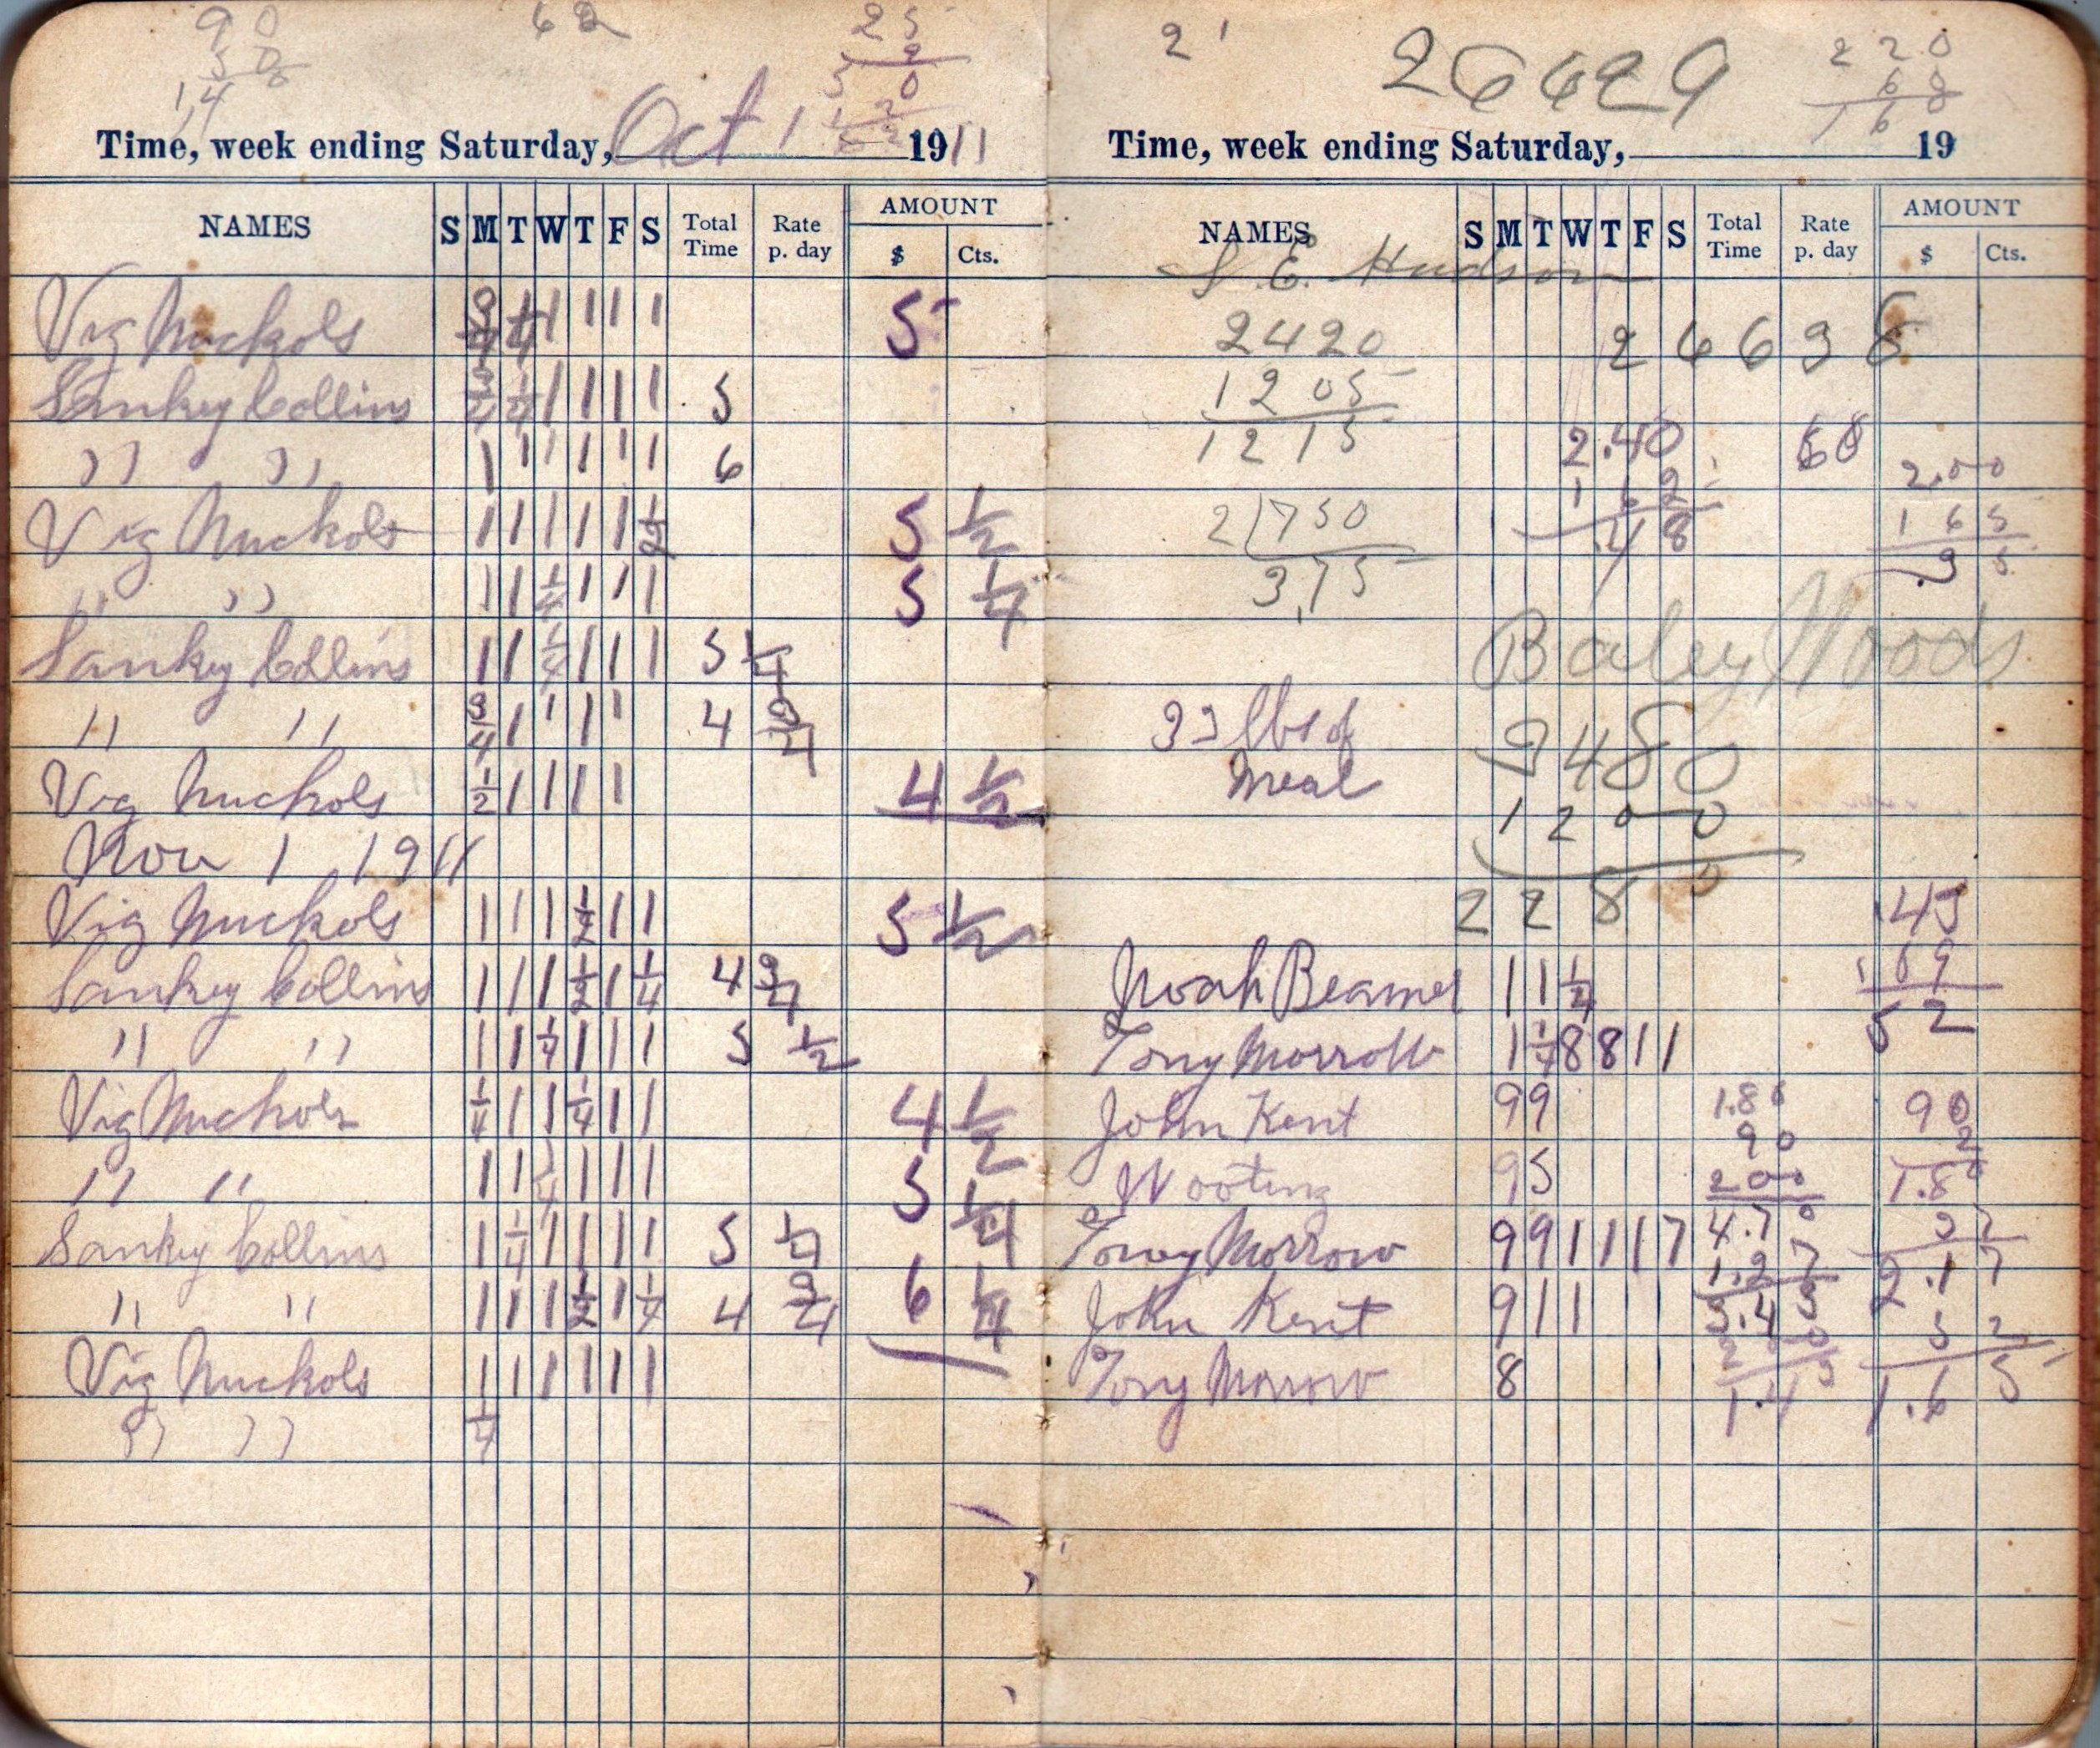 90
50
14
62
25
2
50
Time, week ending Saturday, Oct 1 1911
NAMES S M T W T F S Total Time Rate p. day AMOUNT $ Cts.
Vig Nuckols 3/4 1/4 1 1 1 1 5
Sankey Collins 3/4 1/4 1 1 1 1 5
" " 1 1 1 1 1 1 6
Vig Nuckols 1 1 1 1 1 1/2 5 1/2
" " 1 1 1/4 1 1 1 5 1/4
Sankey Collins 1 1 1/4 1 1 1 5 1/4
" " 3/4 1 1 1 1 4 3/4
Vig Nuckols 1/2 1 1 1 1 4 1/2
Nov 1 1911
Vig Nuckols 1 1 1 1/2 1 1 5 1/2
Sankey Collins 1 1 1 1/2 1 1/4 4 3/4
" " 1 1 1/4 1 1 1 5 1/2
Vig Nuckols 1/4 1 1 1/4 1 1 4 1/2
" " 1 1 1/4 1 1 1 5 1/4
Sankey Collins 1 1/4 1 1 1 1 5 1/4
" " 1 1 1 1/2 1 1/4 4 3/4 6 1/4
Vig Nuckols 1 1 1 1 1 1
" " 1/4
2 1
26429
220
68
168
Time, week ending Saturday, 19
NAMES S M T W T F S Total Time Rate p. day AMOUNT $ Cts.
S. E. Hudson
2420 26638
1205
1215
2.40 68
162
48
2.00
165
.35
2)750
3,75
Baley Woods
33 lbs of
Meal
3480
1200
2280
45
Noah Beamer 1 1 1/4 69
52
Tony Morrow 1 1/4 8 8 1 1
John Kent 9 9 1.80 90
90 2
Wooting 9 5 200 1.80
Tony Morrow 9 9 1 1 1 7 4.70 37
1.27 2.17
John Kent 9 1 1 3.43 52
Tony Morrow 8 1.43 1.65